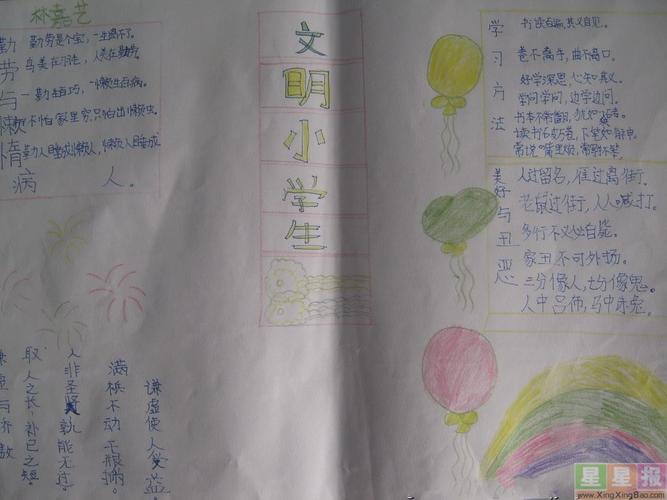 林嘉艺
勤劳与懒惰
勤劳是个宝，一生离不了。
鸟美在羽毛，人美在勤劳。
一勤生百巧，一懒生百病。
不怕家里穷，只怕出懒虫。
病人。
文明小学生
学习方法
书读百遍，其义自见。
卷不离手，曲不离口。
好学深思，心知其义。
学问学问，边学边问。
书本不常翻，犹如一块砖。
常说口里顺，常写手不笨。
美好与丑恶
人过留名，雁过
老鼠过街，人人喊打。
多行不义必自毙。
家丑不可外扬。
三分像人，七分像鬼。
人中吕布，马中赤兔。
谦虚使人受益
满瓶不动半瓶摇。
人非圣贤孰能无过
取人之长，补己之短
星星报
www.XingXingBao.com